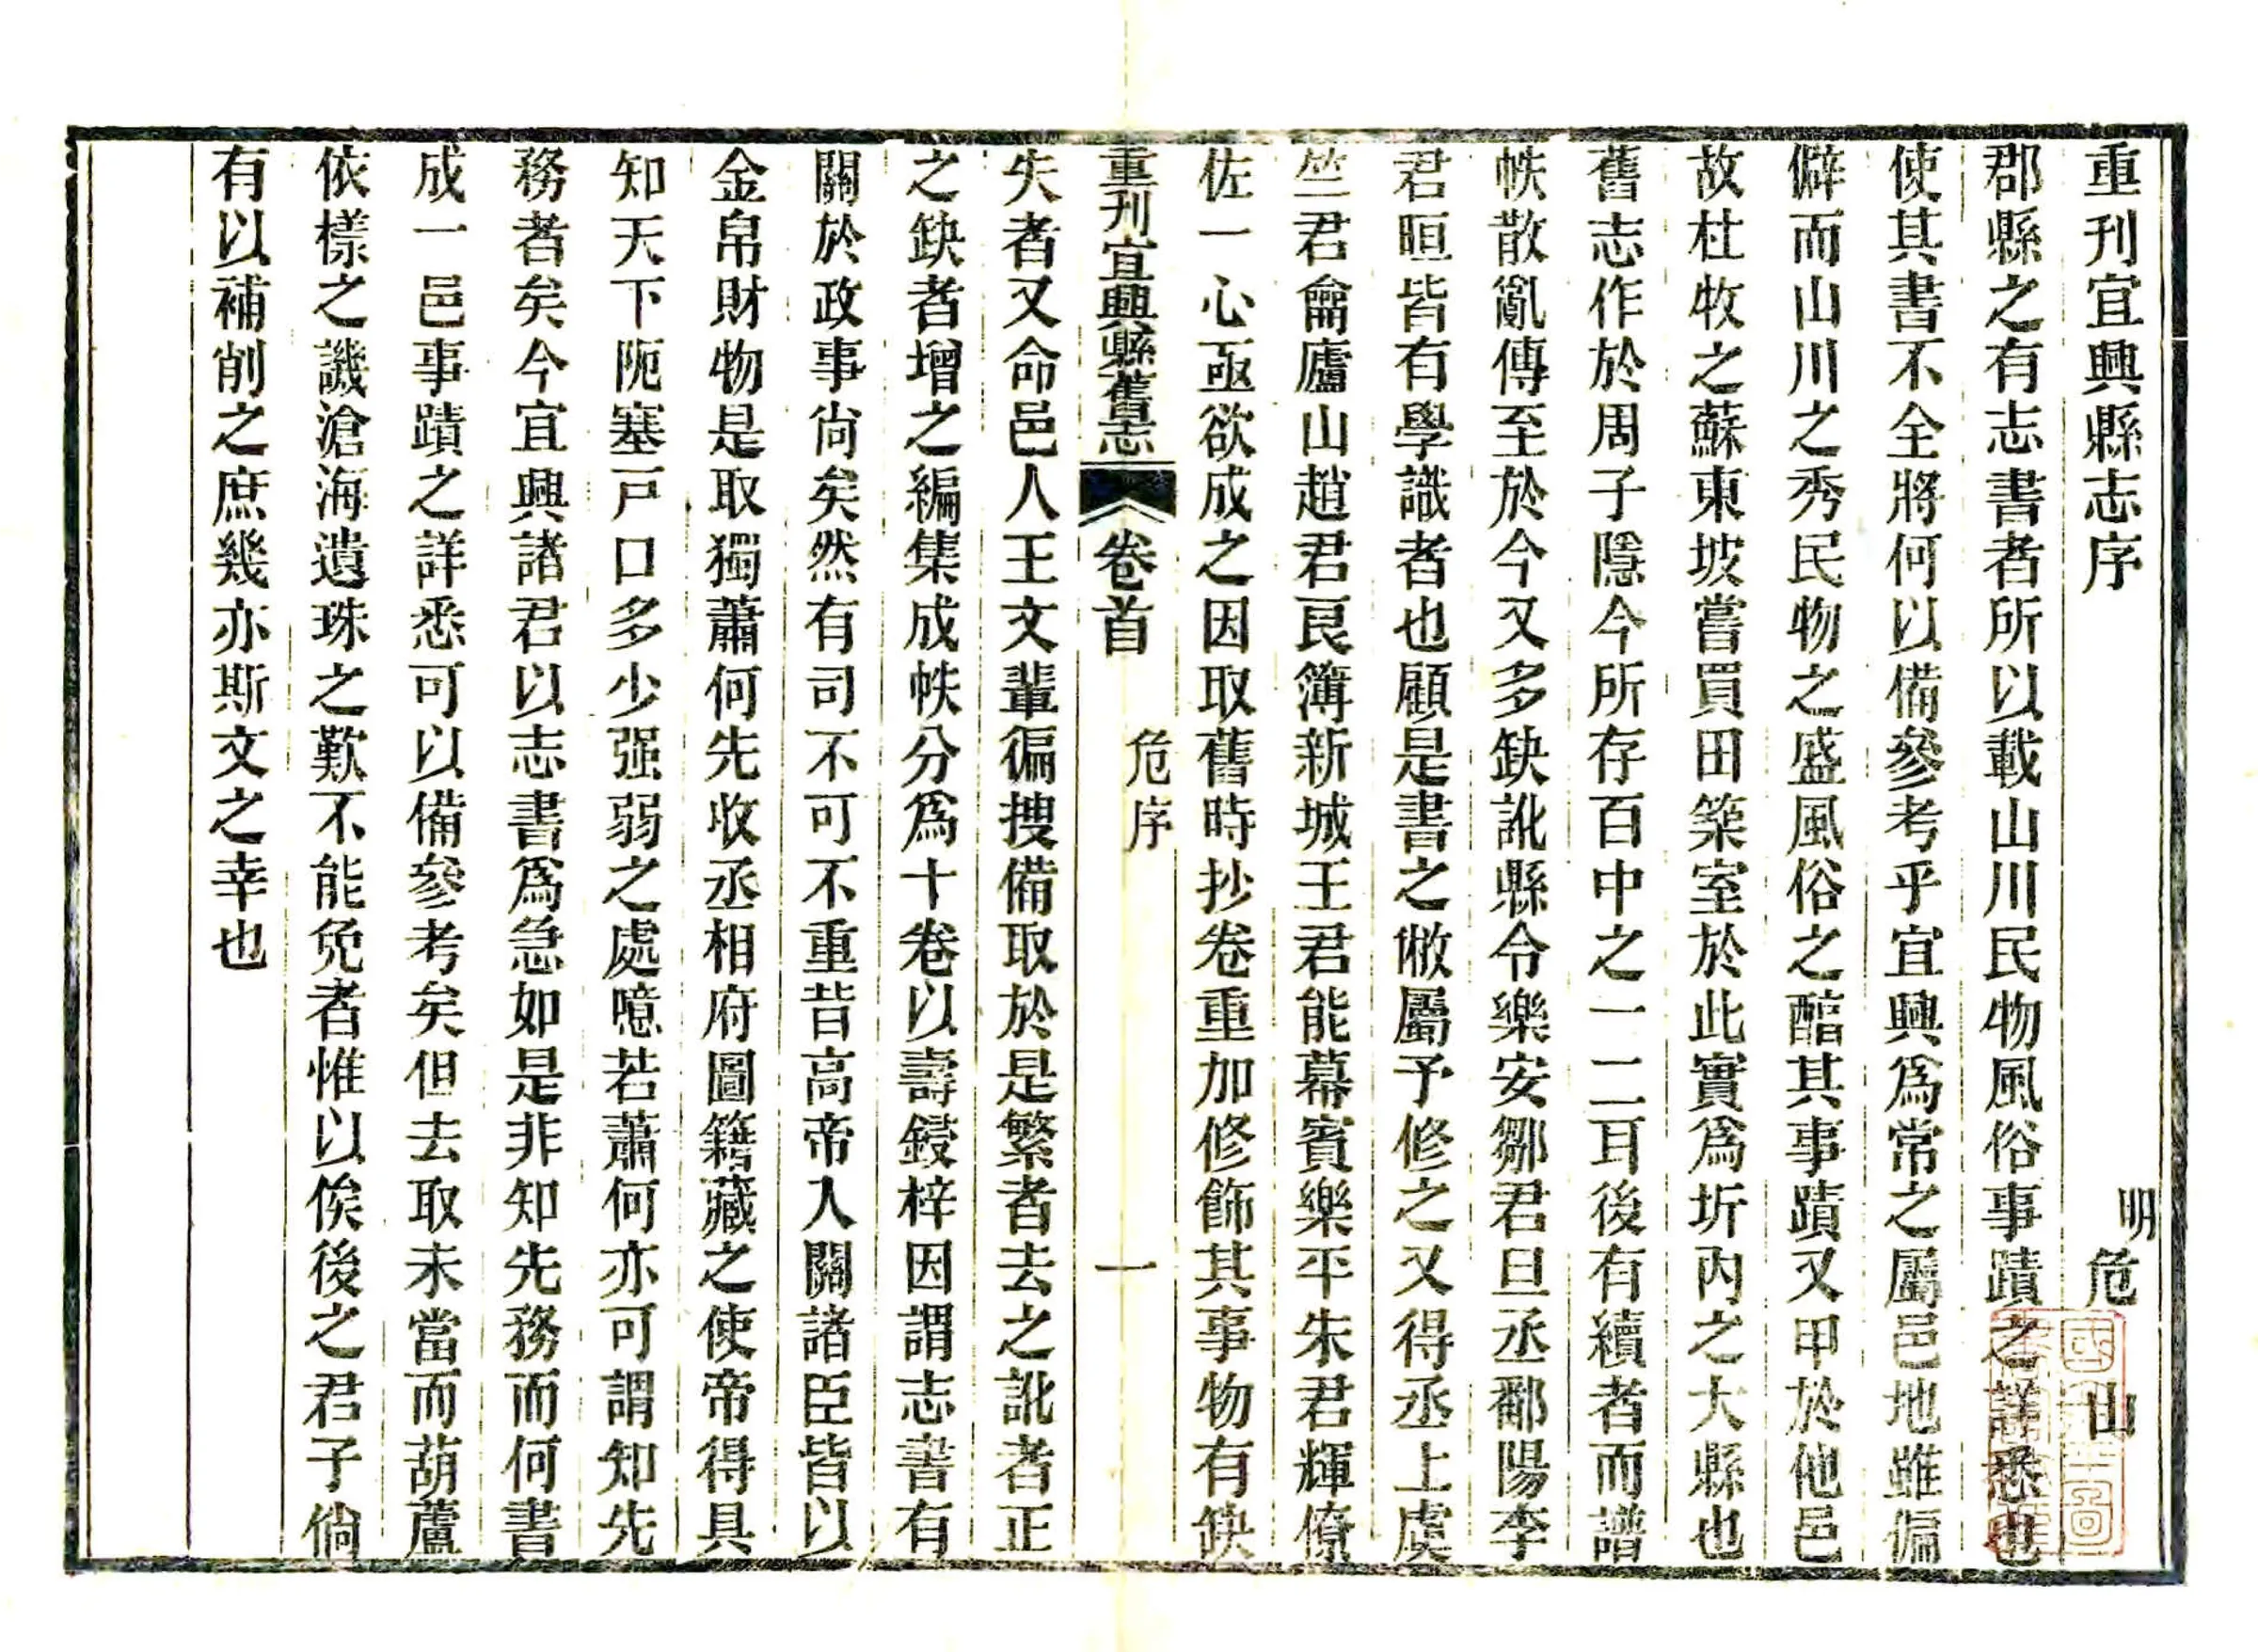 重刊宜興縣志序 明 危山
郡縣之有志書者所以載山川民物風俗事蹟之詳悉也
使其書不全將何以備參考乎宜興爲常之屬邑地雖偏
僻而山川之秀民物之盛風俗之醕其事蹟又甲於他邑
故杜牧之蘇東坡嘗買田築室於此實爲圻內之大縣也
舊志作於周子隱今所存百中之一二耳後有續者而譜
帙散亂傳至於今又多缺訛縣令樂安鄒君旦丞鄱陽李
君晅皆有學識者也顧是書之敝屬予修之又得丞上虞
竺君龠廬山趙君艮簿新城王君能幕賓樂平朱君輝僚
佐一心亟欲成之因取舊時抄卷重加修飾其事物有缺
重刊宜興縣舊志 卷首 危序 一
失者又命邑人王文輩徧搜備取於是繁者去之訛者正
之缺者增之編集成帙分爲十卷以壽鋟梓因謂志書有
關於政事尙矣然有司不可不重昔高帝入關諸臣皆以
金帛財物是取獨蕭何先收丞相府圖籍藏之使帝得具
知天下阨塞戸口多少强弱之處噫若蕭何亦可謂知先
務者矣今宜興諸君以志書爲急如是非知先務而何書
成一邑事蹟之詳悉可以備參考矣但去取未當而葫蘆
依樣之譏滄海遺珠之歎不能免者惟以俟後之君子倘
有以補削之庶幾亦斯文之幸也